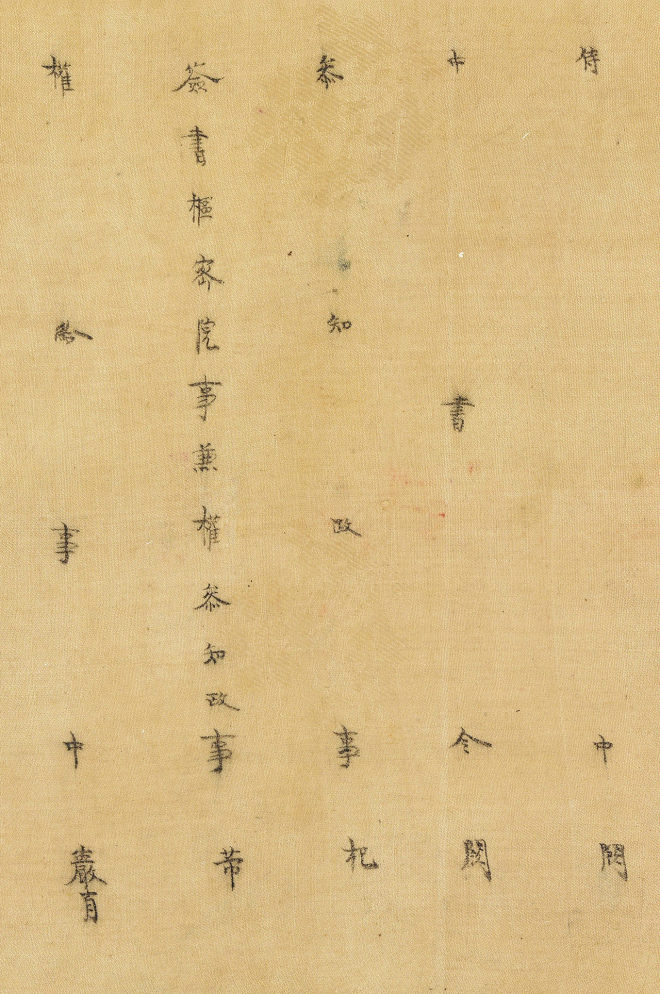 侍中闕
中書令闕
叅知政事杞
簽書樞密院事兼權叅知政事芾
權給事中巖肖